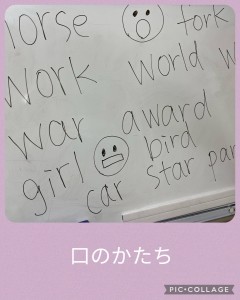 horse fork
work world w
war award
girl bird
car star par
口のかたち
PIC•COLLAGE